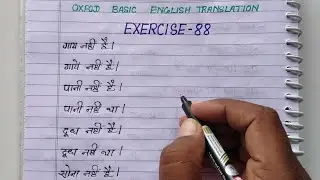 OXFOD BASIC ENGLISH TRANSLATION
EXERCISE-88
गाय नहीं है।
गायें नहीं हैं।
पानी नहीं है।
पानी नहीं था।
दूध नहीं है।
दूध नहीं था।
सोना नहीं है।